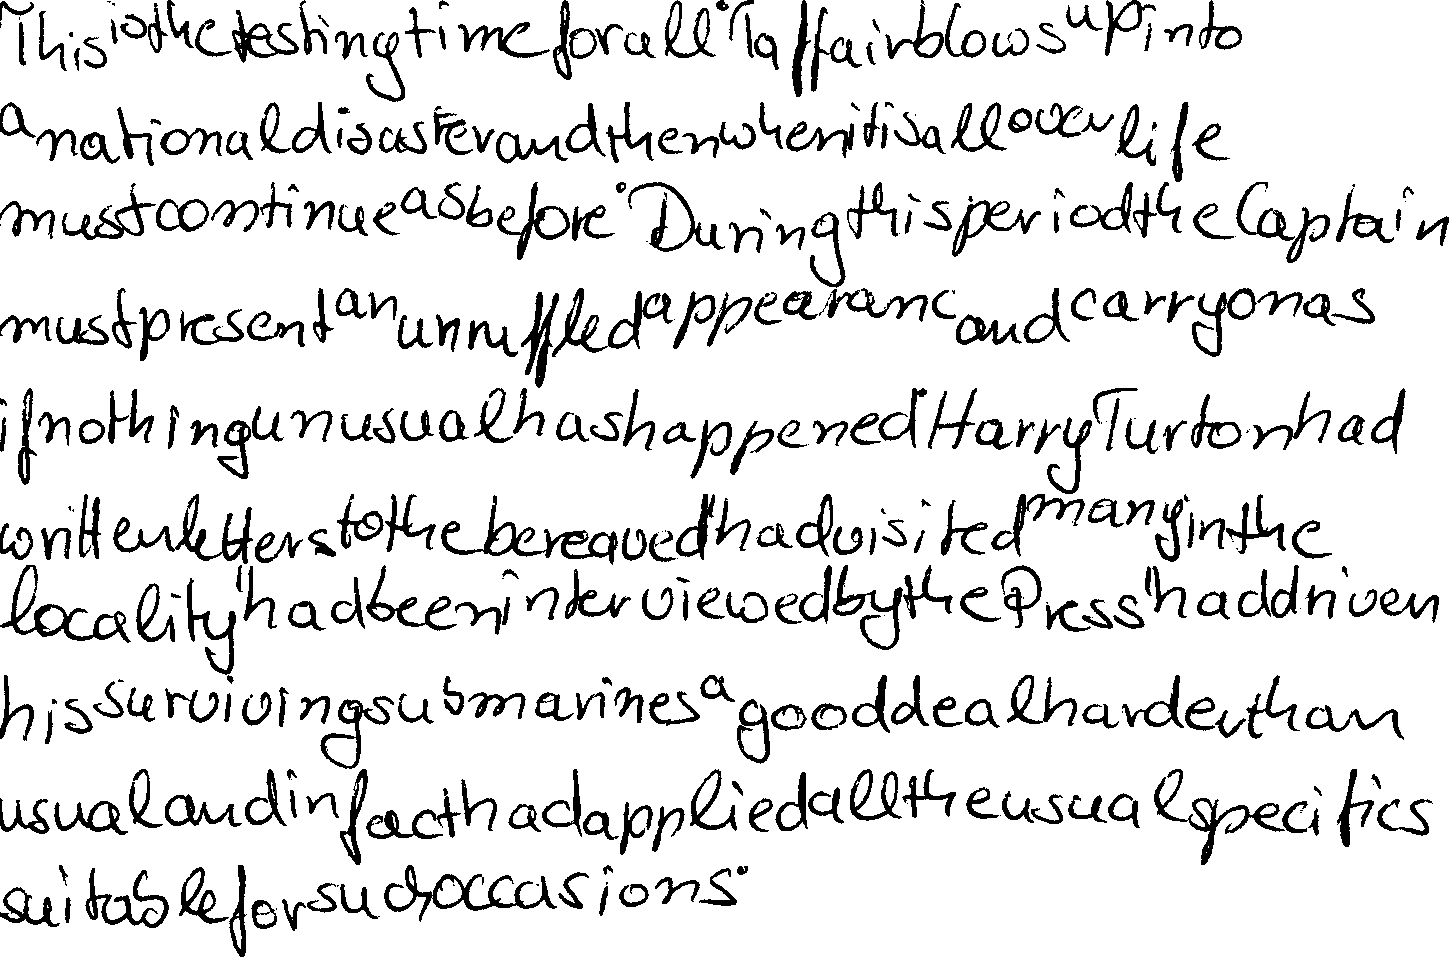 This is the testing time for all. Ta ffair blows up into
a national disaster and then when it is all over life
must continue as before. During this period the Captain
must present an unruffled appearanc and carry on as
if nothing unusual has happened. Harry Turton had
written letters to the bereaved, had visited many in the
locality, had been interviewed by the Press, had driven
his surviving submarines a good deal harder than
usual and in fact had applied all the usual specifics
suitable for such occasions.